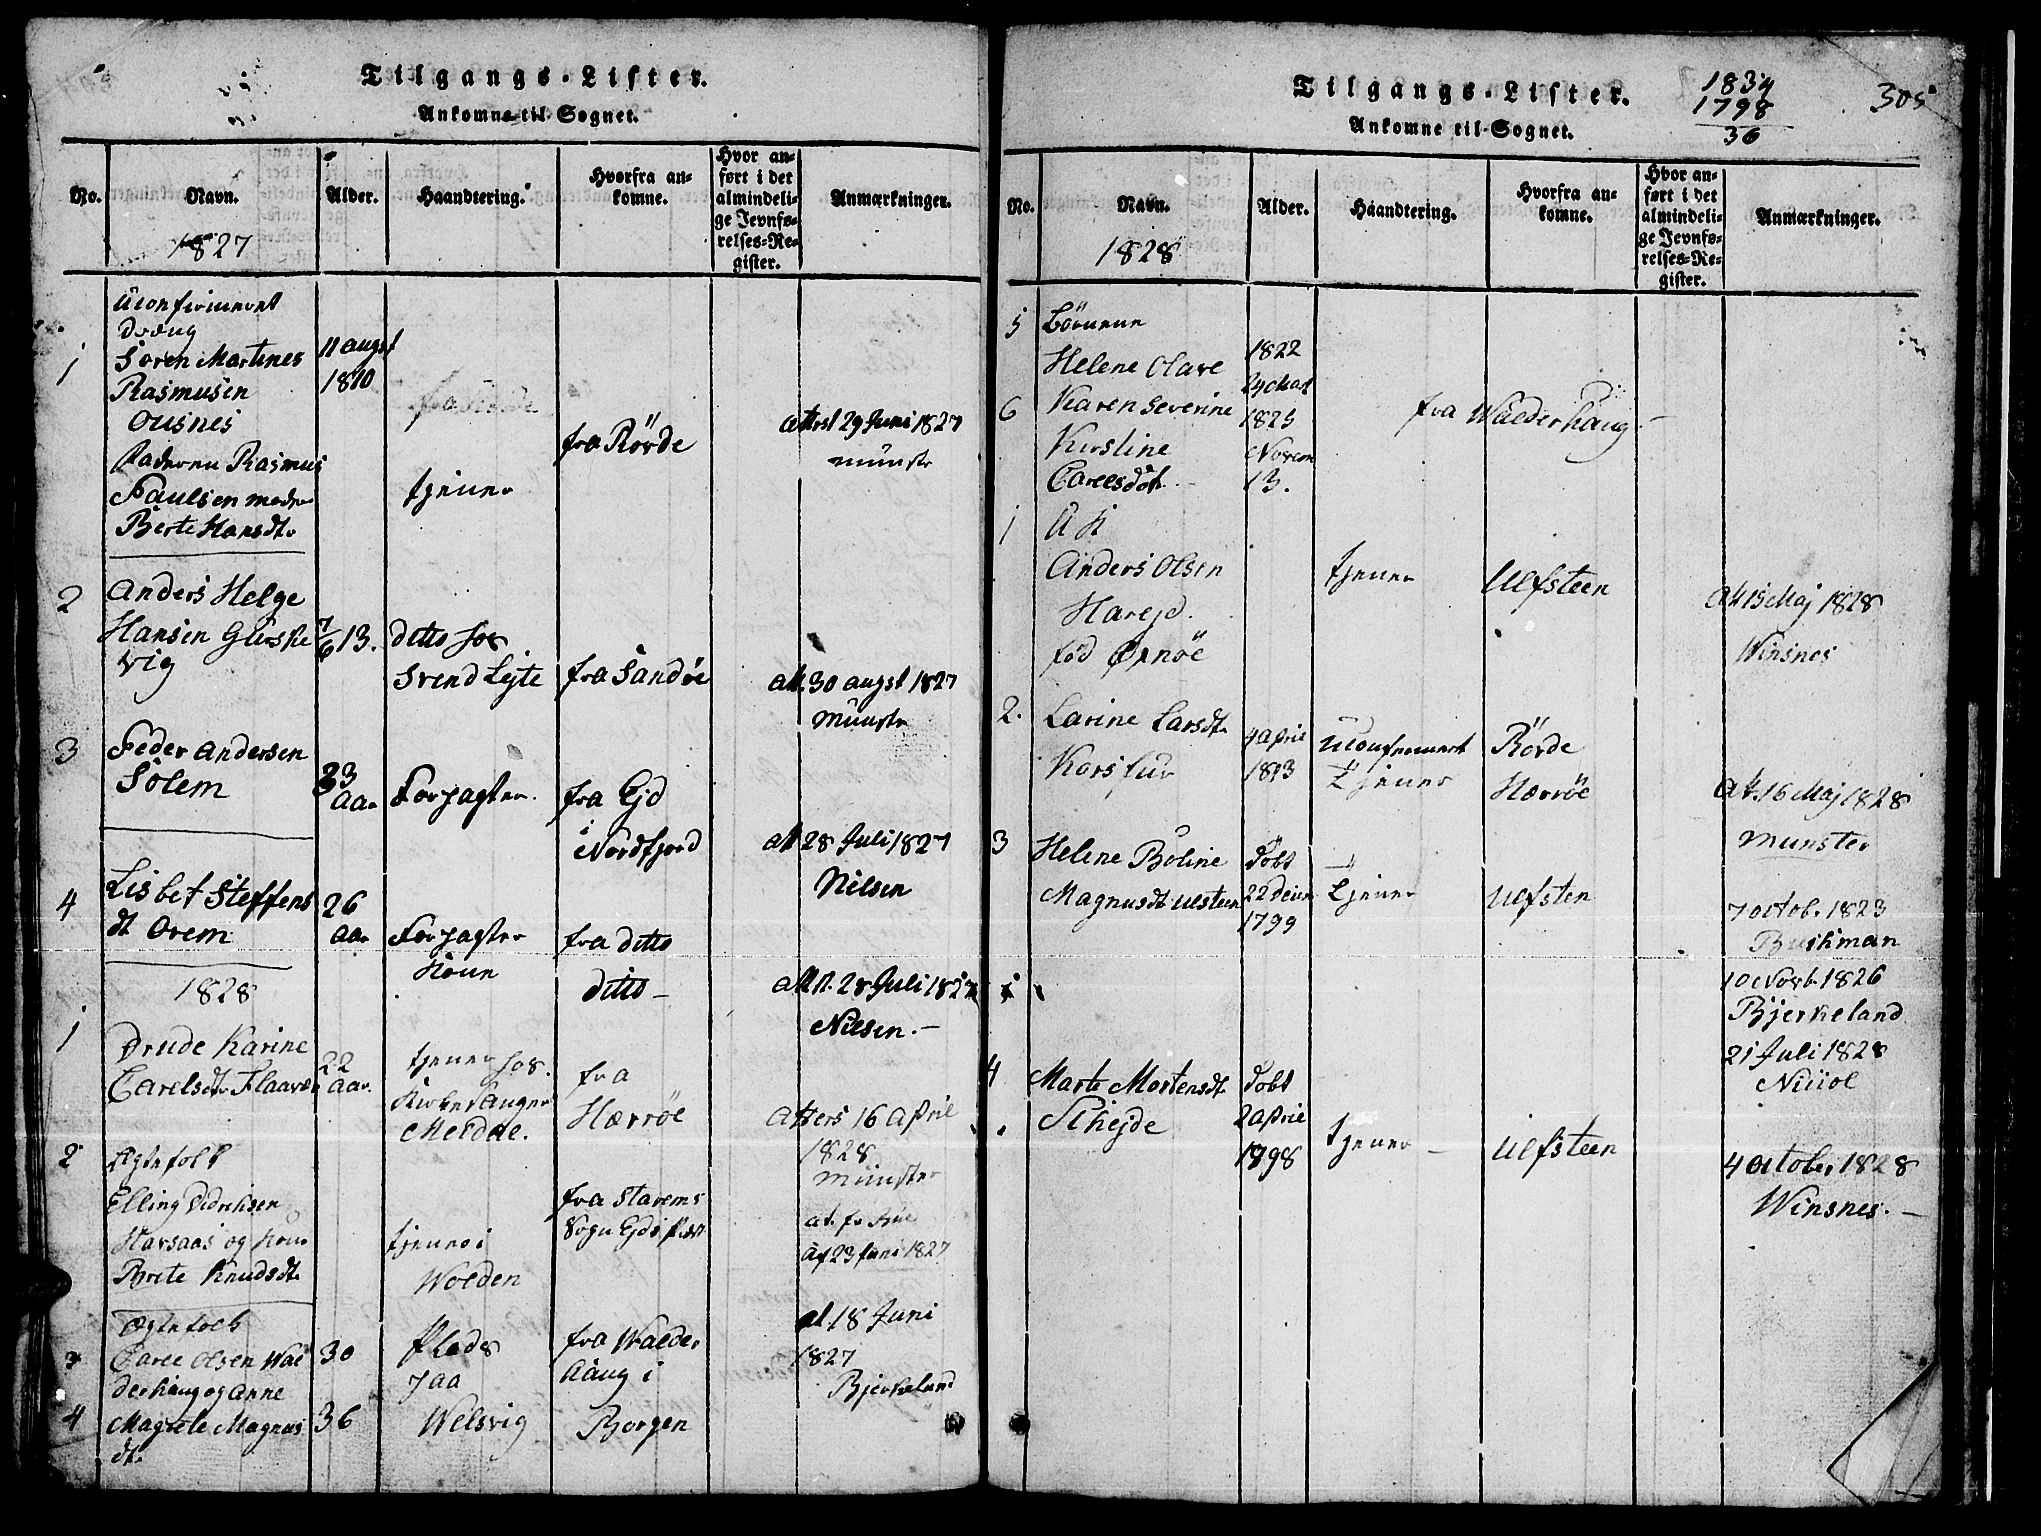 Tilgangs-Lister.
Ankomne til Sognet.
No.
Navn.
Alder.
Haandtering.
Hvorfra an-
komne.
Hvor an-
ført i det
almindeli-
ge Jevnfø-
relses-Re-
gister.
Anmærkninger.
1827
1
Uconfirmeret
Dreng
Søren Martines
Rasmusen
Ousnes
Faderen Rasmus
Paulsen moder
Berte Hansdtr
11 augst
1810
tjener
fra Rövde
attest 29 Juni 1827
münster
2
Anders Helge
Hansen Gurske
vig
7/6 13.
ditto hos
Svend Lejte
fra Sandöe
att. 30 augst 1827
Münster
3
Peder Andersen
Solem
33
aar
Forpagter
fra Ejd
i
Nordfjord
att 28 Juli 1827
Nilsen
4
Lisbet Steffens
dt Orem
26
aar
Forpagter
Kone
fra ditto
ditto
att. 28 Juli 1827
Nilsen.
1828
1
Drude Karine
Carelsdtr Flaavær
22
aar
tjener hos
Kirkesanger
Meldae.
fra
Hærröe
Attest 16 April
1828
münster
2
Ægtefolk
Elling Didriksen
Harsaas og kone
Brite Knudsdtr
tjener i
Wolden
fra Starems
Sogn Ejds Præst
at.
af 23 Juni 1827
Ægtefolk
3
Carel Olsen Wal
derhaug og Anne
4
Magrete Magnus
dt.
30
36
Plads
paa
Welsvig
fra Walder
haug i
Borgen
at 18 Juni
1827
Bjerkeland
Tilgangs-Lister.
Ankomne til Sognet.
1834
1798
36
305
No.
Navn.
Alder.
Haandtering.
Hvorfra an-
komne.
Hvor an-
ført i det
almindeli-
ge Jevnfø-
relses-Re-
gister.
Anmærkninger.
1828
5
Börnene
Helene Olave
6
Karen Severine
Kirstine
Carelsdt
1822
24 Mart
1825
Novem
13.
fra Walderhaug
1
U K
Anders Olsen
Harejd.
föd Ørnöe
tjener
Ulfsteen
Att 15 Maj 1828
Winsnes
2.
Larine Larsdtr
Korsfur
4 April
1813
Uconfirmert
Tjener
Rövde
Hærröe
At. 16 Maj 1828
Munster
3
Helene Boline
Magnusdt Ulsteen
Döbt
22 Decem
1799
Tjener
Ulfsten
7 octob. 1823
Buschman
10 Novb. 1826
Bjerkeland
21 Juli 1828
4
Marte Mortensdt
Skejde
Döbt
2 April
1798
tjener
Ulfsteen
4 October 1828
Winsnes.